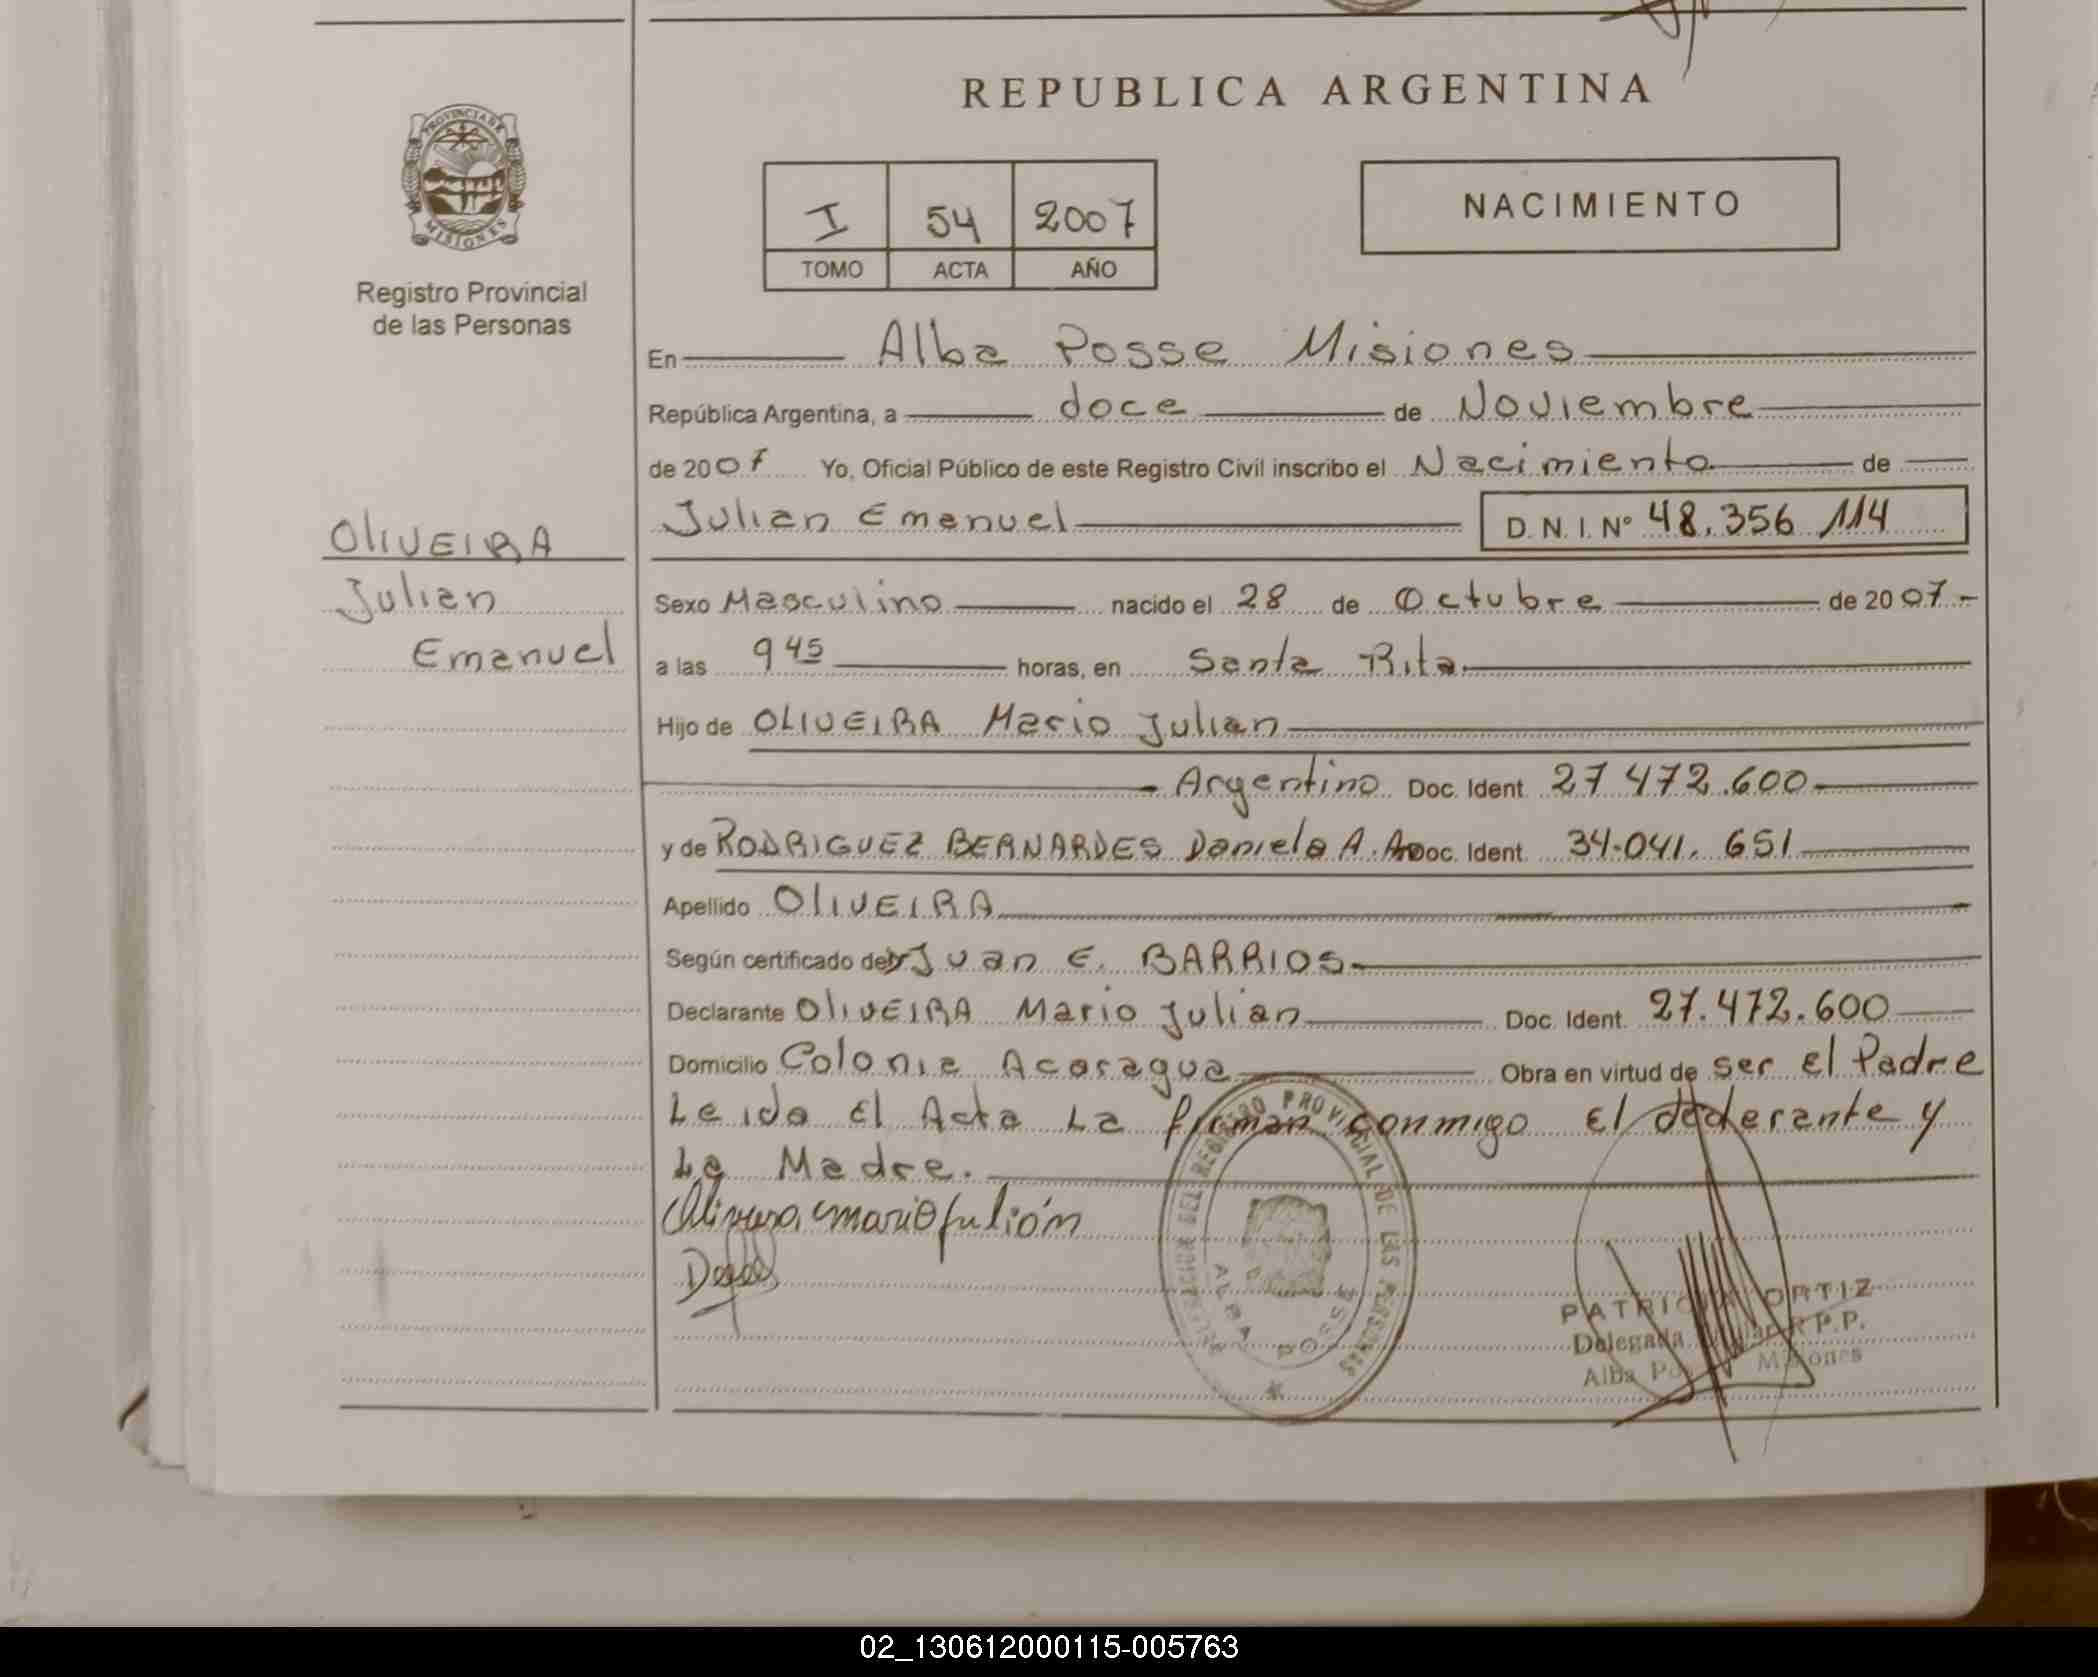 REPUBLICA ARGENTINA
PROVINCIA DE
MISIONES
Registro Provincial
de las Personas
I 54 2007
TOMO ACTA AÑO
NACIMIENTO
En Alba Posse Misiones
República Argentina, a doce de Noviembre
de 2007 Yo, Oficial Público de este Registro Civil inscribo el Nacimiento de
Julian Emanuel D. N. I. Nº 48.356 114
OLIVEIRA
Julian
Emanuel
Sexo Masculino nacido el 28 de Octubre de 2007.-
a las 9 45 horas, en Santa Rita
Hijo de OLIVEIRA Mario Julian
Argentino Doc. Ident. 27 472.600
y de RODRIGUEZ BERNARDES Daniela A. Doc. Ident. 34.041. 651
Apellido OLIVEIRA
Según certificado de Juan E. BARRIOS
Declarante OLIVEIRA Mario Julian Doc. Ident. 27.472.600
Domicilio Colonia Acaragua Obra en virtud de ser El Padre
Leida El Acta La firman conmigo El declarante y
La Madre.
Mario Julión
DELEGACION DEL REGISTRO PROVINCIAL DE LAS PERSONAS
ALBA POSSE
PATRICIA ORTIZ
Delegada R.P.P.
Alba Posse Misiones
02_130612000115-005763